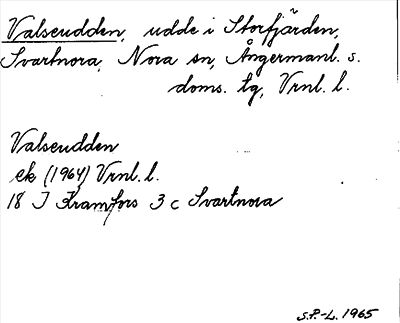 Valseudden, udde i Storfjärden,
Svartnora, Nora sn, Ångermanl. s.
doms. tg, Vrnl. l.
Valseudden
ek (1964) Vrnl. l.
18 I Kramfors 3 c Svartnora
S.P.-L. 1965